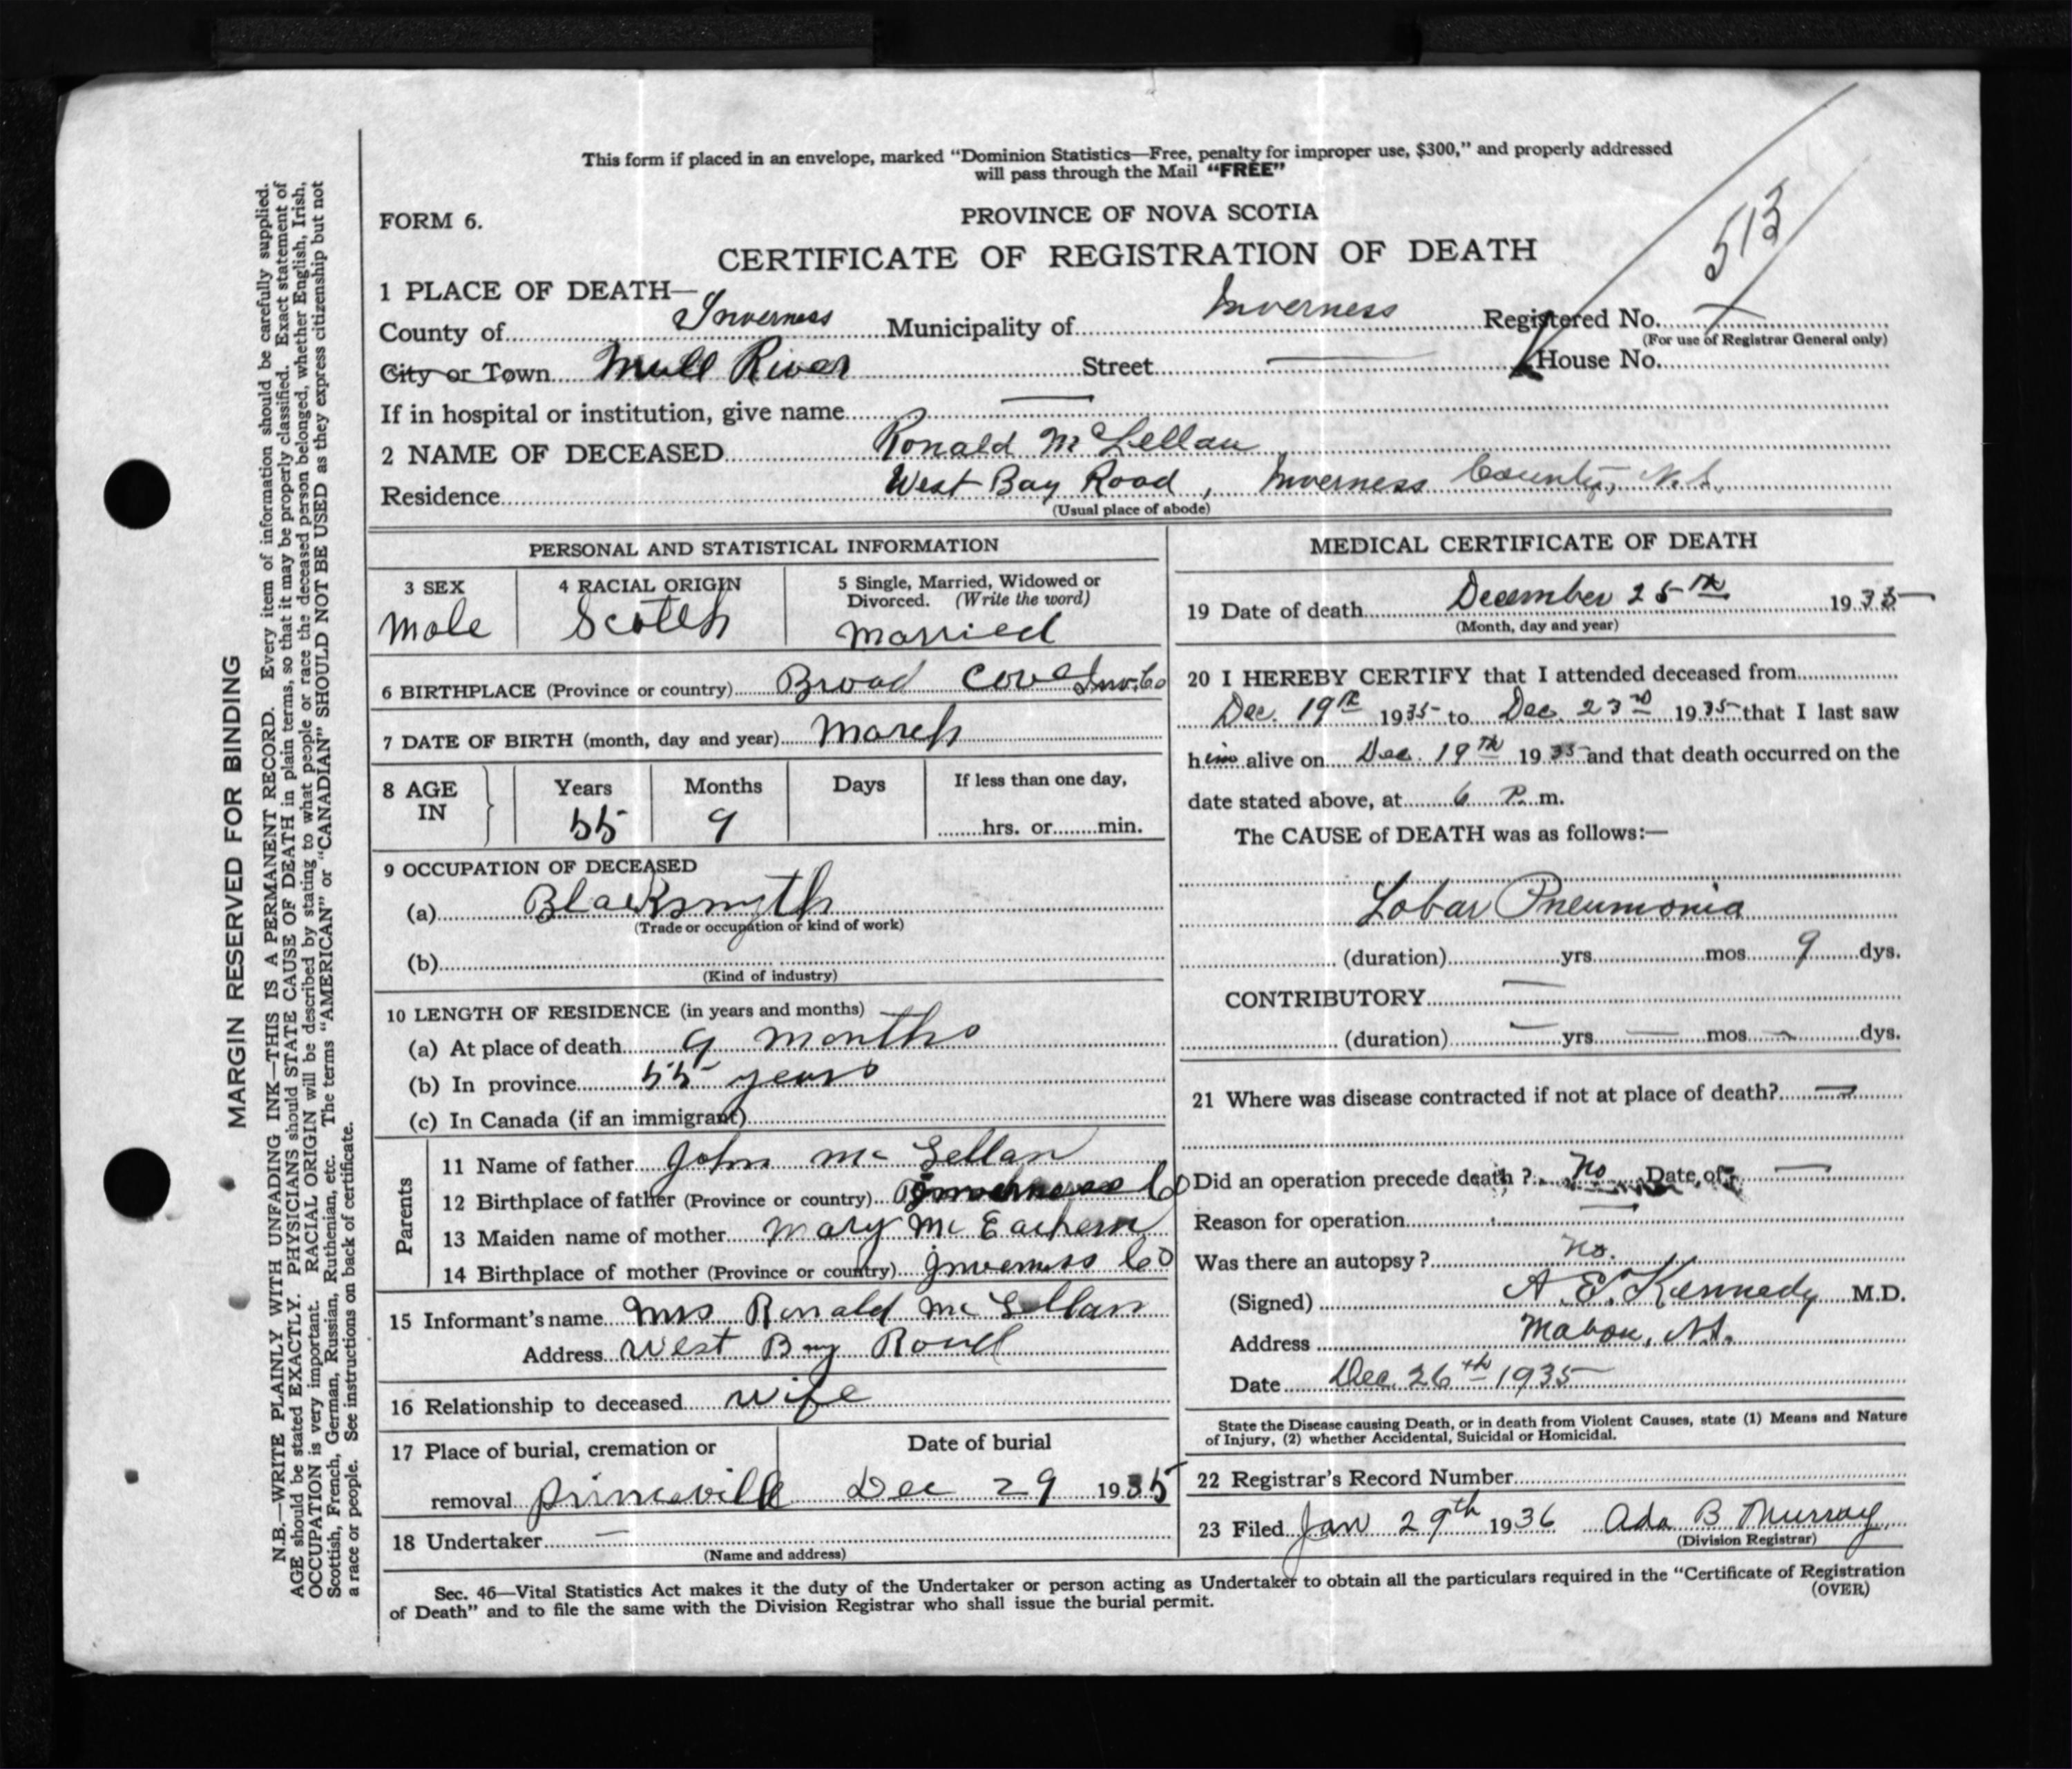 This form if placed in an envelope, marked “Dominion Statistics—Free, penalty for improper use, $300,” and properly addressed
will pass through the Mail “FREE”
FORM 6.
PROVINCE OF NOVA SCOTIA
513
CERTIFICATE OF REGISTRATION OF DEATH
1 PLACE OF DEATH—
County of Inverness Municipality of Inverness Registered No.
(For use of Registrar General only)
City or Town Mull River Street — House No.
If in hospital or institution, give name —
2 NAME OF DECEASED Ronald McLellan
Residence West Bay Road, Inverness County, N.S.
(Usual place of abode)
PERSONAL AND STATISTICAL INFORMATION
3 SEX
Male
4 RACIAL ORIGIN
Scotch
5 Single, Married, Widowed or
Divorced. (Write the word)
Married
6 BIRTHPLACE (Province or country) Broad Cove Inv. Co
7 DATE OF BIRTH (month, day and year) March
8 AGE IN
Years Months Days If less than one day,
55 9 hrs. or min.
9 OCCUPATION OF DECEASED
(a) Blacksmyth
(Trade or occupation or kind of work)
(b)
(Kind of industry)
10 LENGTH OF RESIDENCE (in years and months)
(a) At place of death 9 months
(b) In province 55 years
(c) In Canada (if an immigrant)
Parents
11 Name of father John McLellan
12 Birthplace of father (Province or country) Inverness Co
13 Maiden name of mother Mary McEachern
14 Birthplace of mother (Province or country) Inverness Co
15 Informant's name Mrs Ronald McLellan
Address West Bay Road
16 Relationship to deceased wife
17 Place of burial, cremation or Date of burial
removal Princeville Dec 29 1935
18 Undertaker —
(Name and address)
MEDICAL CERTIFICATE OF DEATH
19 Date of death December 25th 1935
(Month, day and year)
20 I HEREBY CERTIFY that I attended deceased from
Dec. 19th 1935 to Dec. 23rd 1935 that I last saw
him alive on Dec. 19th 1935 and that death occurred on the
date stated above, at 6 P. m.
The CAUSE of DEATH was as follows:—
Lobar Pneumonia
(duration) yrs. mos. 9 dys.
CONTRIBUTORY —
(duration) — yrs. — mos. — dys.
21 Where was disease contracted if not at place of death? —
Did an operation precede death? No Date of —
Reason for operation —
Was there an autopsy? No.
(Signed) A. E. Kennedy M.D.
Address Mabou, N.S.
Date Dec. 26th 1935
State the Disease causing Death, or in death from Violent Causes, state (1) Means and Nature
of Injury, (2) whether Accidental, Suicidal or Homicidal.
22 Registrar's Record Number
23 Filed Jan 29th 1936 Ada B Murray
(Division Registrar)
Sec. 46—Vital Statistics Act makes it the duty of the Undertaker or person acting as Undertaker to obtain all the particulars required in the “Certificate of Registration
of Death” and to file the same with the Division Registrar who shall issue the burial permit.
(OVER)
MARGIN RESERVED FOR BINDING
N.B.—WRITE PLAINLY WITH UNFADING INK—THIS IS A PERMANENT RECORD. Every item of information should be carefully supplied.
AGE should be stated EXACTLY. PHYSICIANS should STATE CAUSE OF DEATH in plain terms, so that it may be properly classified. Exact statement of
OCCUPATION is very important. RACIAL ORIGIN will be described by stating to what people or race the deceased person belonged, whether English, Irish,
Scottish, French, German, Russian, Ruthenian, etc. The terms “AMERICAN” or “CANADIAN” SHOULD NOT BE USED as they express citizenship but not
a race or people. See instructions on back of certificate.